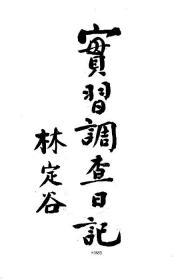 實習調查日記
林定谷